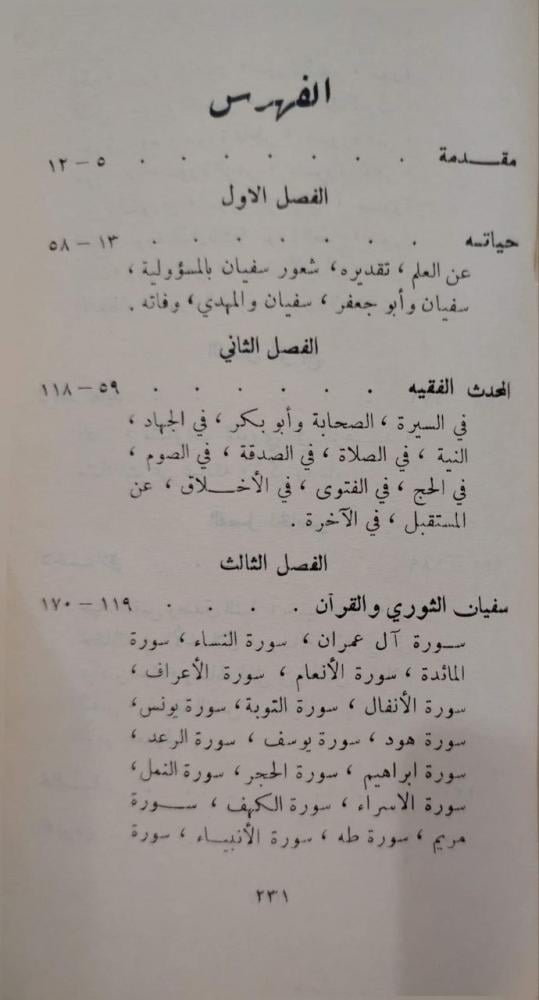 الفهرس
مقـــدمة . . . . . . . ٥ – ١٢
الفصل الاول
حياتـه . . . . . . . ١٣ – ٥٨
عن العلم ، تقديره، شعور سفيان بالمسؤولية ،
سفيان وأبو جعفر ، سفيان والمهدي، وفاته .
الفصل الثاني
المحدث الفقيه . . . . . . ٥٩ – ١١٨
في السيرة ، الصحابة وأبو بكر ، في الجهاد ،
النية ، في الصلاة ، في الصدقة ، في الصوم ،
في الحج ، في الفتوى ، في الأخـــلاق ، عن
المستقبل ، في الآخرة .
الفصل الثالث
سفيان الثوري والقرآن . . . . ١١٩ – ١٧٠
ســورة آل عمران ، سورة النساء ، سورة
المائدة ، سورة الأنعام ، سورة الأعراف ،
سورة الأنفال ، سورة التوبة، سورة يونس،
سورة هود ، سورة يوسف ، سورة الرعد ،
سورة ابراهيم ، سورة الحجر، سورة النمل،
سورة الاسراء ، سورة الكهف ، ســـورة
مريم ، سورة طه ، سورة الأنبيـاء ، سورة
٢٣١